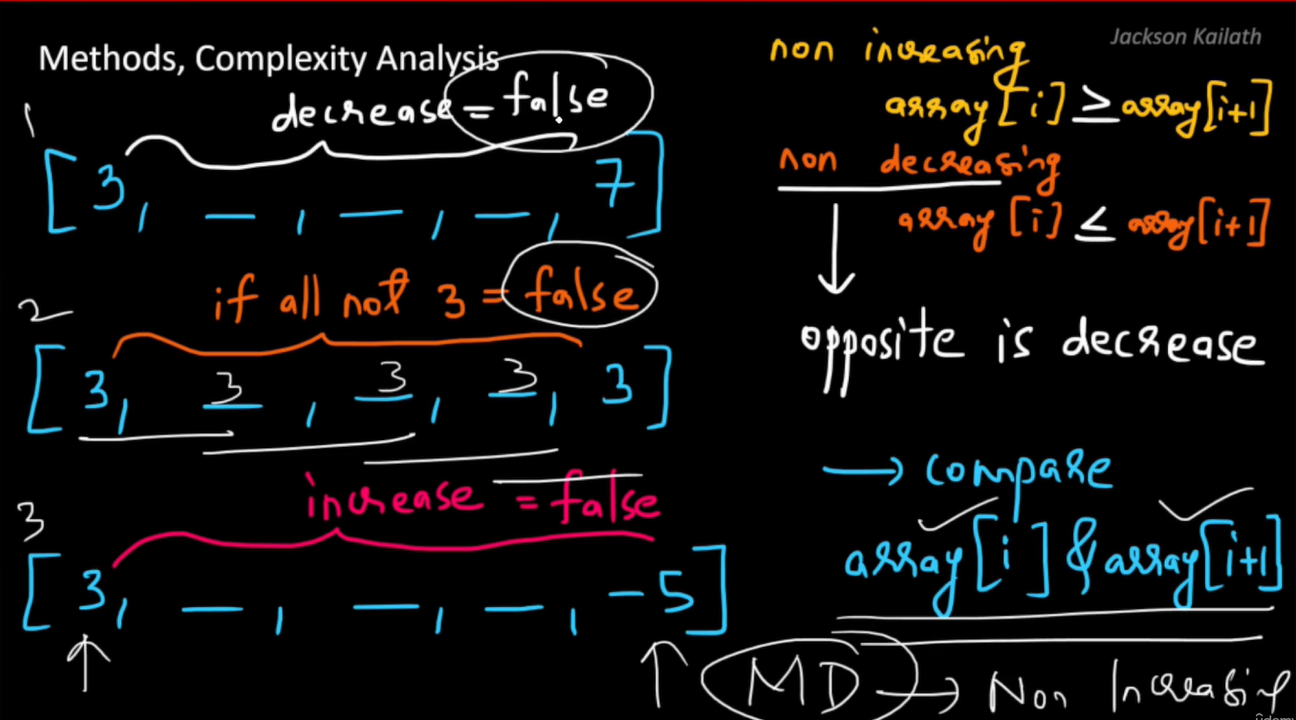 Jackson Kailath
Methods, Complexity Analysis
decrease = false
1
[3, _, _, _, 7]
if all not 3 = false
2
[3, 3, 3, 3, 3]
increase = false
3
[3, _, _, _, -5]
non increasing
array[i] ≥ array[i+1]
non decreasing
array[i] ≤ array[i+1]
opposite is decrease
→ compare
array[i] & array[i+1]
MD → Non Increasing